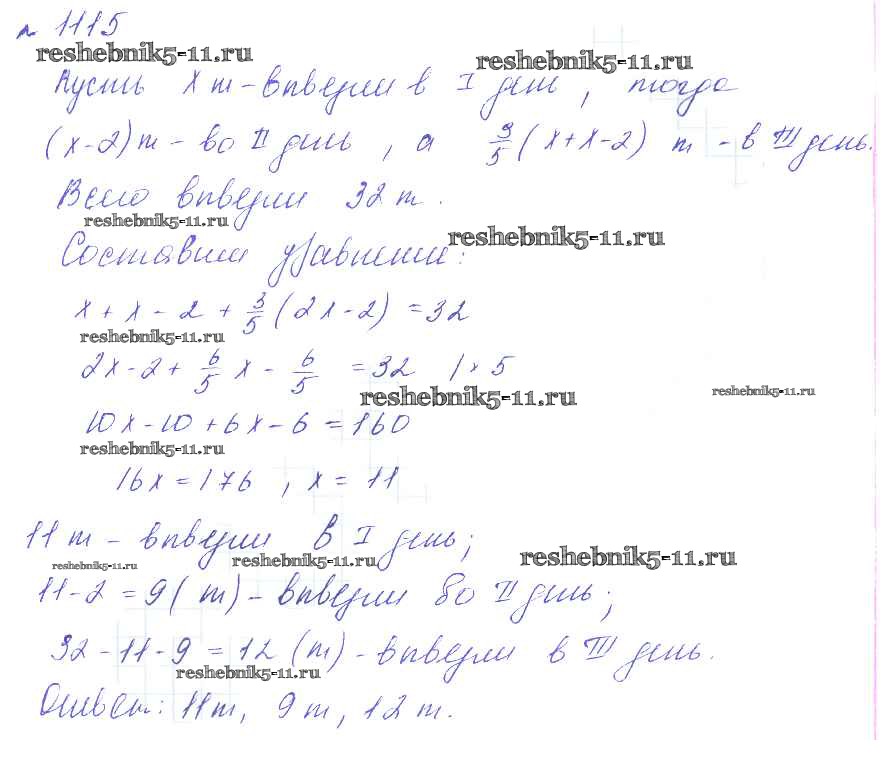 № 1115
reshebnik5-11.ru reshebnik5-11.ru
Пусть x т - впвезли в I день, тогда
(x-2) т - во II день, а 3/5 (x+x-2) т - в III день.
Всего впвезли 32 т.
reshebnik5-11.ru
Составим уравнение: reshebnik5-11.ru
x + x - 2 + 3/5 (2x-2) = 32
reshebnik5-11.ru
2x - 2 + 6/5 x - 6/5 = 32 | × 5
reshebnik5-11.ru reshebnik5-11.ru
10x - 10 + 6x - 6 = 160
reshebnik5-11.ru
16x = 176, x = 11
11 т - впвезли в I день;
reshebnik5-11.ru reshebnik5-11.ru reshebnik5-11.ru
11 - 2 = 9 (т) - впвезли во II день;
32 - 11 - 9 = 12 (т) - впвезли в III день.
reshebnik5-11.ru
Ответ: 11 т, 9 т, 12 т.